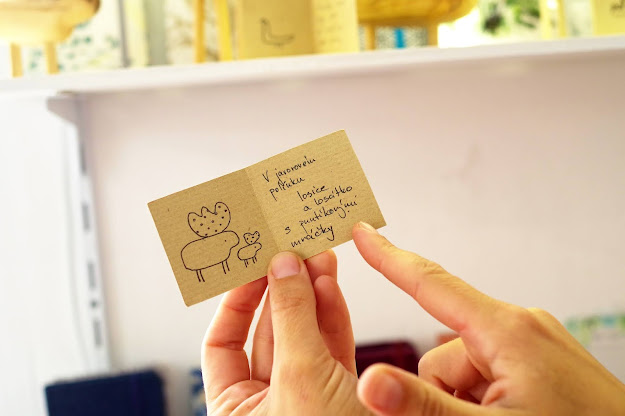 V javorovém
losice
a losátko
s puntíkovými
mráčky